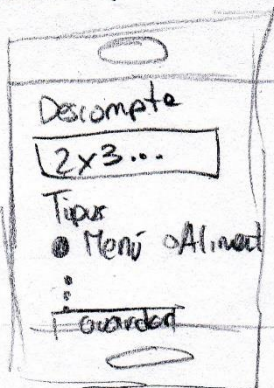 Descompte
2x3...
Tipus
Menú Aliment
guardar